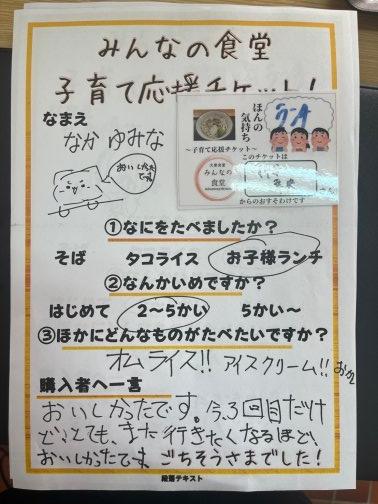 みんなの食堂
子育て応援チケット!
なまえ
なか ゆみな
おいしかったです
ほんの
気持ち
〜子育て応援チケット〜
このチケットは
みんなの
食堂
さん
からのおすそわけです
①なにをたべましたか?
そば タコライス お子様ランチ
②なんかいめですか?
はじめて 2〜5かい 5かい〜
③ほかにどんなものがたべたいですか?
オムライス!! アイスクリーム!!
購入者へ一言
おいしかったです。今、3回目だけ
ど、とても、また行きたくなるほど、
おいしかったです。ごちそうさまでした!
段落テキスト